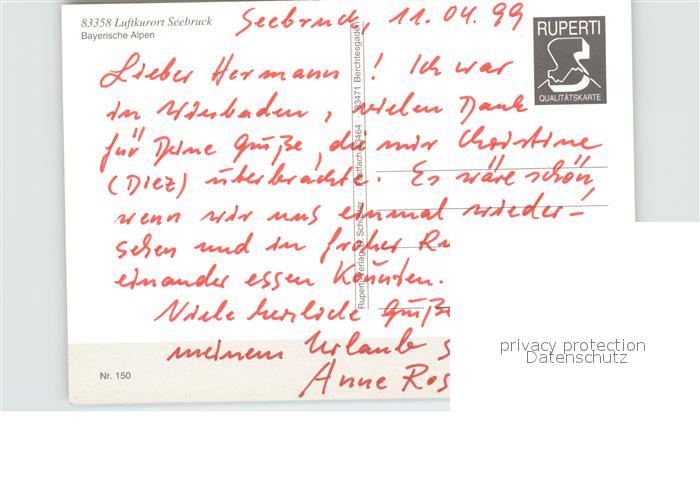 83358 Luftkurort Seebruck
Bayerische Alpen
Seebruck, 11.04.99
RUPERTI
QUALITÄTSKARTE
Lieber Hermann! Ich war
in Wiesbaden, vielen Dank
für Deine Grüße, die mir Christine
(Diez) überbrachte. Es wäre schön,
wenn wir uns einmal wieder-
sehen und in froher
einander essen könnten.
Viele herzliche Grüße
meinem Urlaub
Anne
Nr. 150
83471 Berchtesgaden
privacy protection
Datenschutz